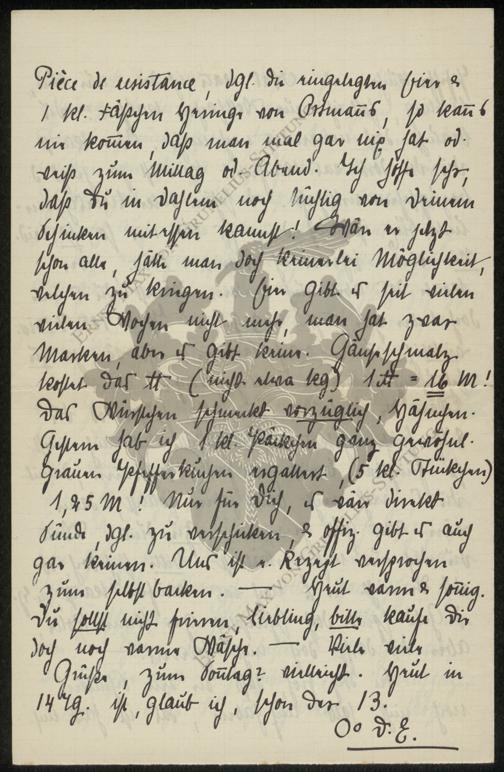 Pièce de resistance, dgl. die eingelegten Eier &
1 kl. Fäßchen Heringe von Ostmanns, so kanns
nie kommen, daß man mal gar nix hat od.
weiß zum Mittag od. Abend. Ich hoffe sehr,
daß Du in Dahlem noch tüchtig von Deinem
Schinken mitessen kannst! Wär er jetzt
schon alle, hätte man doch keinerlei Möglichkeit,
welchen zu kriegen. Eier gibt es seit vielen
vielen Wochen nicht mehr, man hat zwar
Marken, aber es gibt keine. Gänseschmalz
kostet das ℔ (nicht etwa kg) 1 ℔ = 16 M!
Das Würstchen schmeckt vorzüglich, Häschen.
Gestern hab ich 1 kl. Päckchen ganz gewöhnl.
grauen Pfefferkuchen ergattert, (5 kl. Stückchen)
1,25 M! Nur für Dich, es wär direkt
Sünde dgl. zu verschenken, & offiz. gibt es auch
gar keinen. Uns ist e. Rezept versprochen
zum selbst backen. — Heut warm & sonnig.
Du sollst nicht frieren Liebling, bitte kaufe Dir
doch noch warme Wäsche. — Viele viele
Grüße, zum Sonntag? vielleicht. Heut in
14 Tg. ist, glaub ich, schon der 13.
D. E.
ERNST MAX VON GRUNELIUS-STIFTUNG